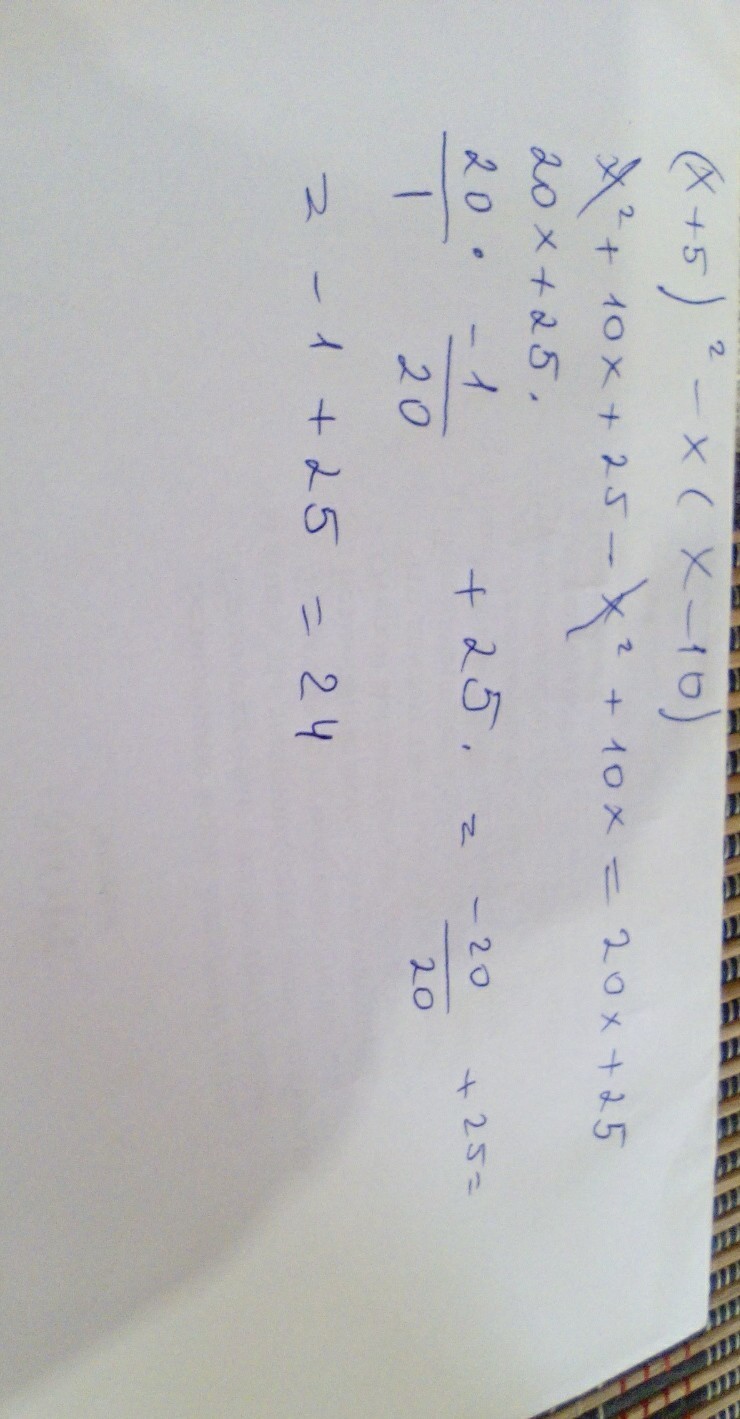 (x+5)² - x(x-10)
x² + 10x + 25 - x² + 10x = 20x + 25
20x + 25.
20/1 · -1/20 + 25. = -20/20 + 25 =
= -1 + 25 = 24